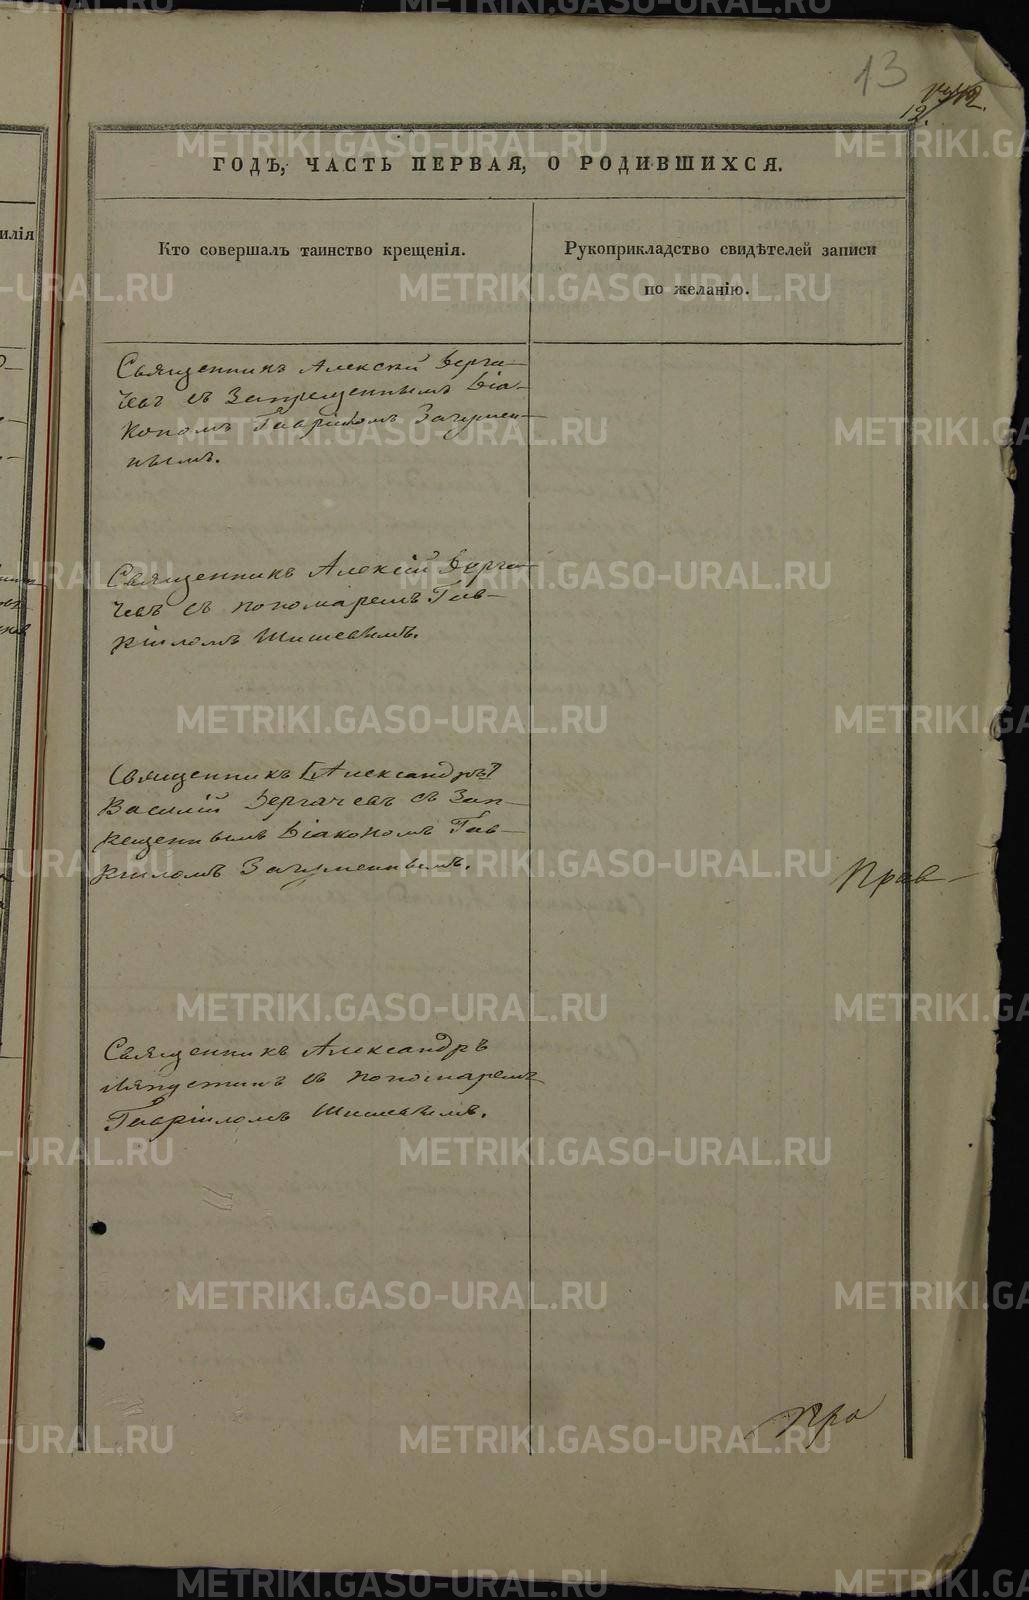 13
12.
ГОДЪ, ЧАСТЬ ПЕРВАЯ, О РОДИВШИХСЯ.
илія
Кто совершалъ таинство крещенія.
Рукоприкладство свидѣтелей записи
по желанію.
Священникъ Алексій Дерга-
чевъ съ Запрещеннымъ Діа-
кономъ Гавріиломъ Зачумен-
нымъ.
Священникъ Алексій Дерга-
чевъ съ пономаремъ Гав-
ріиломъ Шишевымъ.
Священникъ [Александръ]
Василій Дергачевъ съ Зап-
рещеннымъ Діакономъ Гав-
ріиломъ Зачуменнымъ.
Прав-
Священникъ Александръ
Ляпустинъ съ пономаремъ
Гавріиломъ Шишевымъ.
Про
METRIKI.GASO-URAL.RU